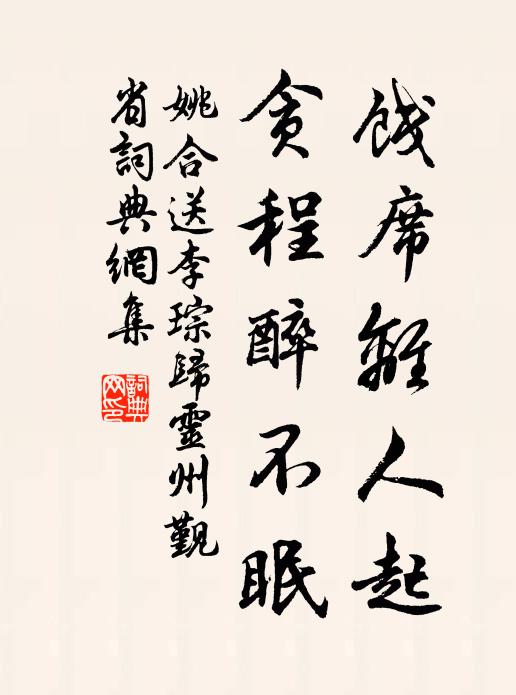 餞席離人起
貪程醉不眠
姚合送李琮歸靈州覲
省詞典網集
詞典
网印